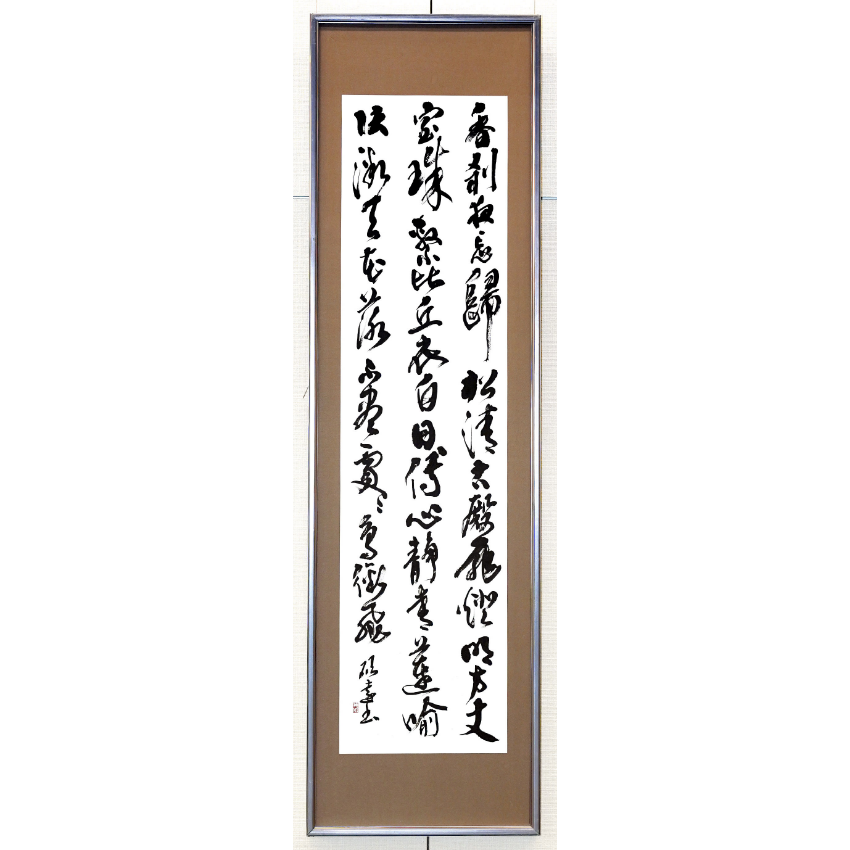 香刹夜忘歸松清古殿扉燈明方丈
室珠繫比丘衣白日傳心靜青蓮喻
法微天花落不盡處々鳥銜飛